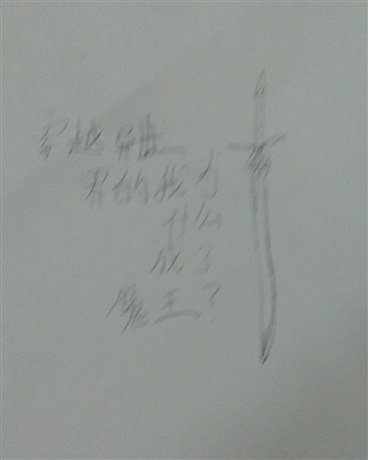 穿越异世
界的我为
什么
成了
魔王？